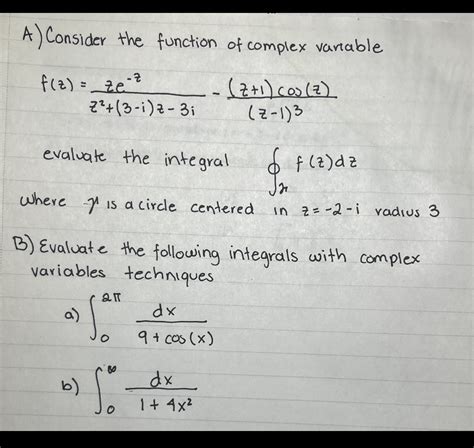 A) Consider the function of complex variable
f(z) = ze^{-z} / (z²+(3-i)z-3i) - (z+1) cos(z) / (z-1)³
evaluate the integral ∮_γ f(z)dz
where γ is a circle centered in z=-2-i radius 3
B) Evaluate the following integrals with complex
variables techniques
a) ∫_0^{2π} dx / (9+cos(x))
b) ∫_0^∞ dx / (1+4x²)